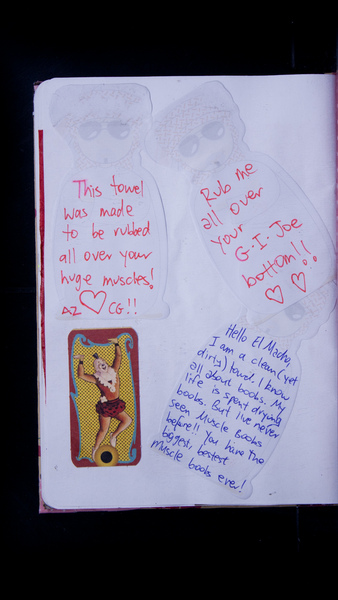 This towel
was made
to be rubbed
all over your
huge muscles!
AZ ♡ CG!!
Rub me
all over
your
G.I. Joe
bottom!!
♡ ♡
Hello El Macho,
I am a clean (yet
dirty) towel. I know
all about boobs. My
life is spent drying
boobs. But I've never
seen Muscle Boobs
before!! You have the
biggest, bestest
muscle boobs ever!